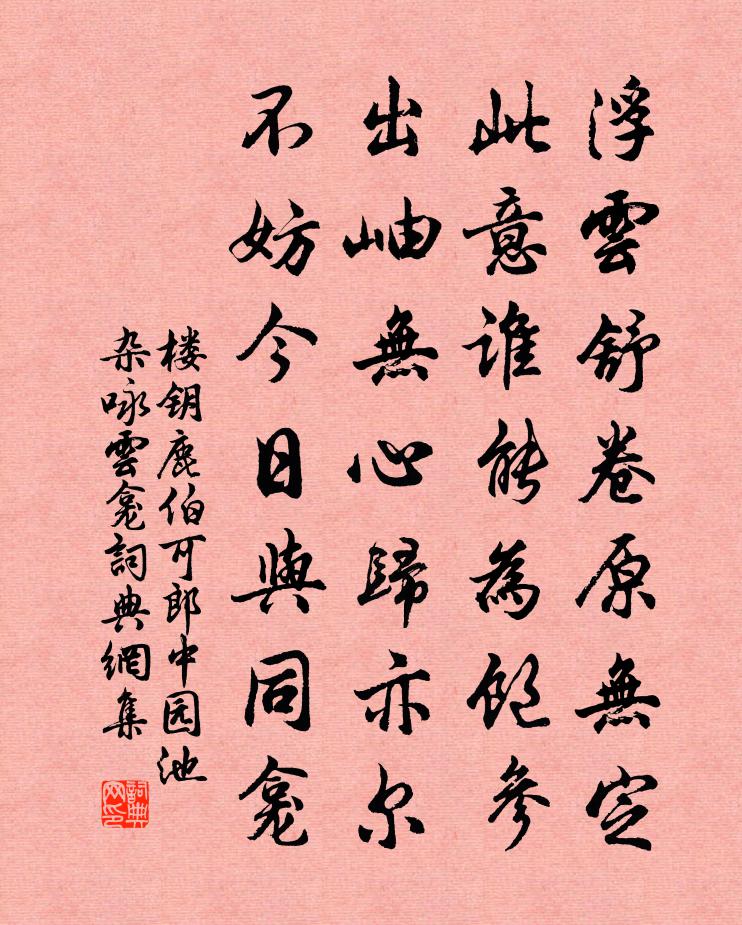 浮雲舒卷原無定
此意誰能為飽參
出岫無心歸亦尔
不妨今日與同龛
楼钥鹿伯可郎中园池
杂咏雲龛詞典網集
詞典
网印